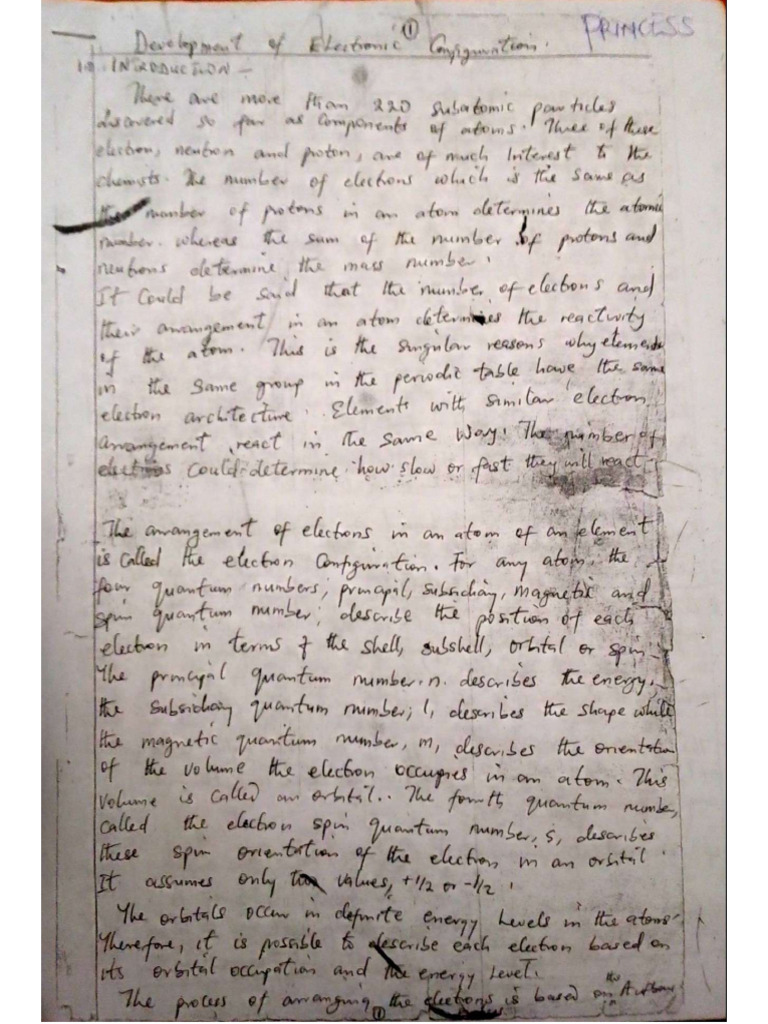 ①
PRINCESS
Development of Electronic Configuration.
1.0 INTRODUCTION -
There are more than 220 subatomic particles
discovered so far as components of atoms. Three of these
electron, neutron and proton, are of much interest to the
chemists. The number of electrons which is the same as
the number of protons in an atom determines the atomic
number. whereas the sum of the number of protons and
neutrons determine the mass number.
It could be said that the number of electrons and
their arrangement in an atom determines the reactivity
of the atom. This is the singular reasons why elements
in the same group in the periodic table have the same
electron architecture. Elements with similar electron
arrangement react in the same way. The number of
electrons could determine how slow or fast they will react.
The arrangement of electrons in an atom of an element
is called the electron configuration. For any atom, the
four quantum numbers; principal, subsidiary, magnetic and
spin quantum number; describe the position of each
electron in terms of the shell, subshell, orbital or spin.
The principal quantum number. n. describes the energy,
the subsidiary quantum number; l, describes the shape while
the magnetic quantum number, m, describes the orientation
of the volume the electron occupies in an atom. This
volume is called an orbital.. The fourth quantum number,
called the electron spin quantum number, s, describes
these spin orientation of the electron in an orbital.
It assumes only two values, +1/2 or -1/2.
The orbitals occur in definite energy levels in the atoms.
Therefore, it is possible to describe each electron based on
its orbital occupation and the energy level.
The process of arranging the electrons is based on the Aufbau
①